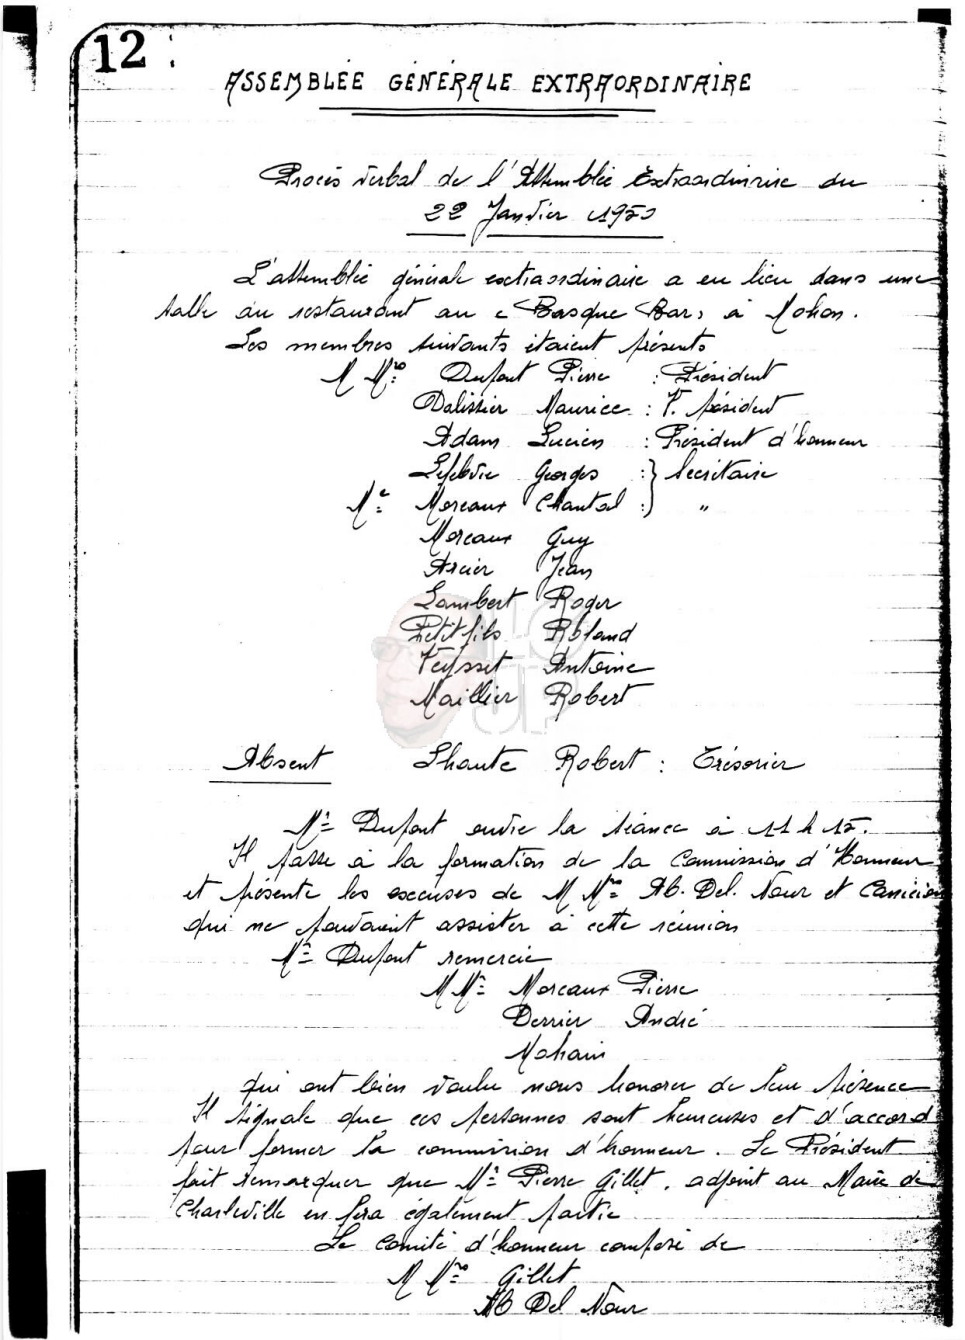 12 :
ASSEMBLÉE GÉNÉRALE EXTRAORDINAIRE
Procès verbal de l'Assemblée Extraordinaire du
22 Janvier 1950
L'assemblée générale extraordinaire a eu lieu dans une
salle du restaurant au "Basque Bar" à Mohon.
Les membres suivants étaient présents
M Mrs Dupont Pierre : Président
Dalissier Maurice : V. président
Adam Lucien : Président d'honneur
Lefebvre Georges :} Secrétaire
Me Moreaux Chantal :} "
Moreaux Guy
Arcier Jean
Lambert Roger
Petitfils Roland
Veysset Antoine
Maillier Robert
Absent Lhoute Robert : Trésorier
Mr Dupont ouvre la séance à 11 h 15.
Il passe à la formation de la Commission d'Honneur
et présente les excuses de M Mrs Ab. Del. Nour et
qui ne pouvaient assister à cette réunion
Mr Dupont remercie
M Mrs Moreaux Pierre
Derrier André
Mohain
qui ont bien voulu nous honorer de leur présence
Il signale que ces personnes sont heureuses et d'accord
pour former la commission d'honneur. Le Président
fait remarquer que Mr Pierre Gillet, adjoint au Maire de
Charleville en fera également partie
Le comité d'honneur composé de
M Mrs Gillet
Ab Del Nour